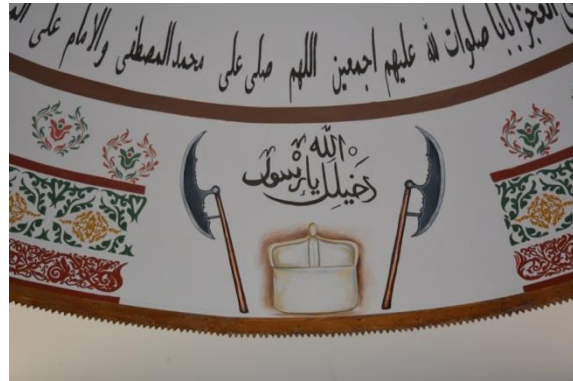 بابا صلوات لله عليهم اجمعين اللهم صلى على محمد المصطفى والامام على
دخيلك يا رسول الله